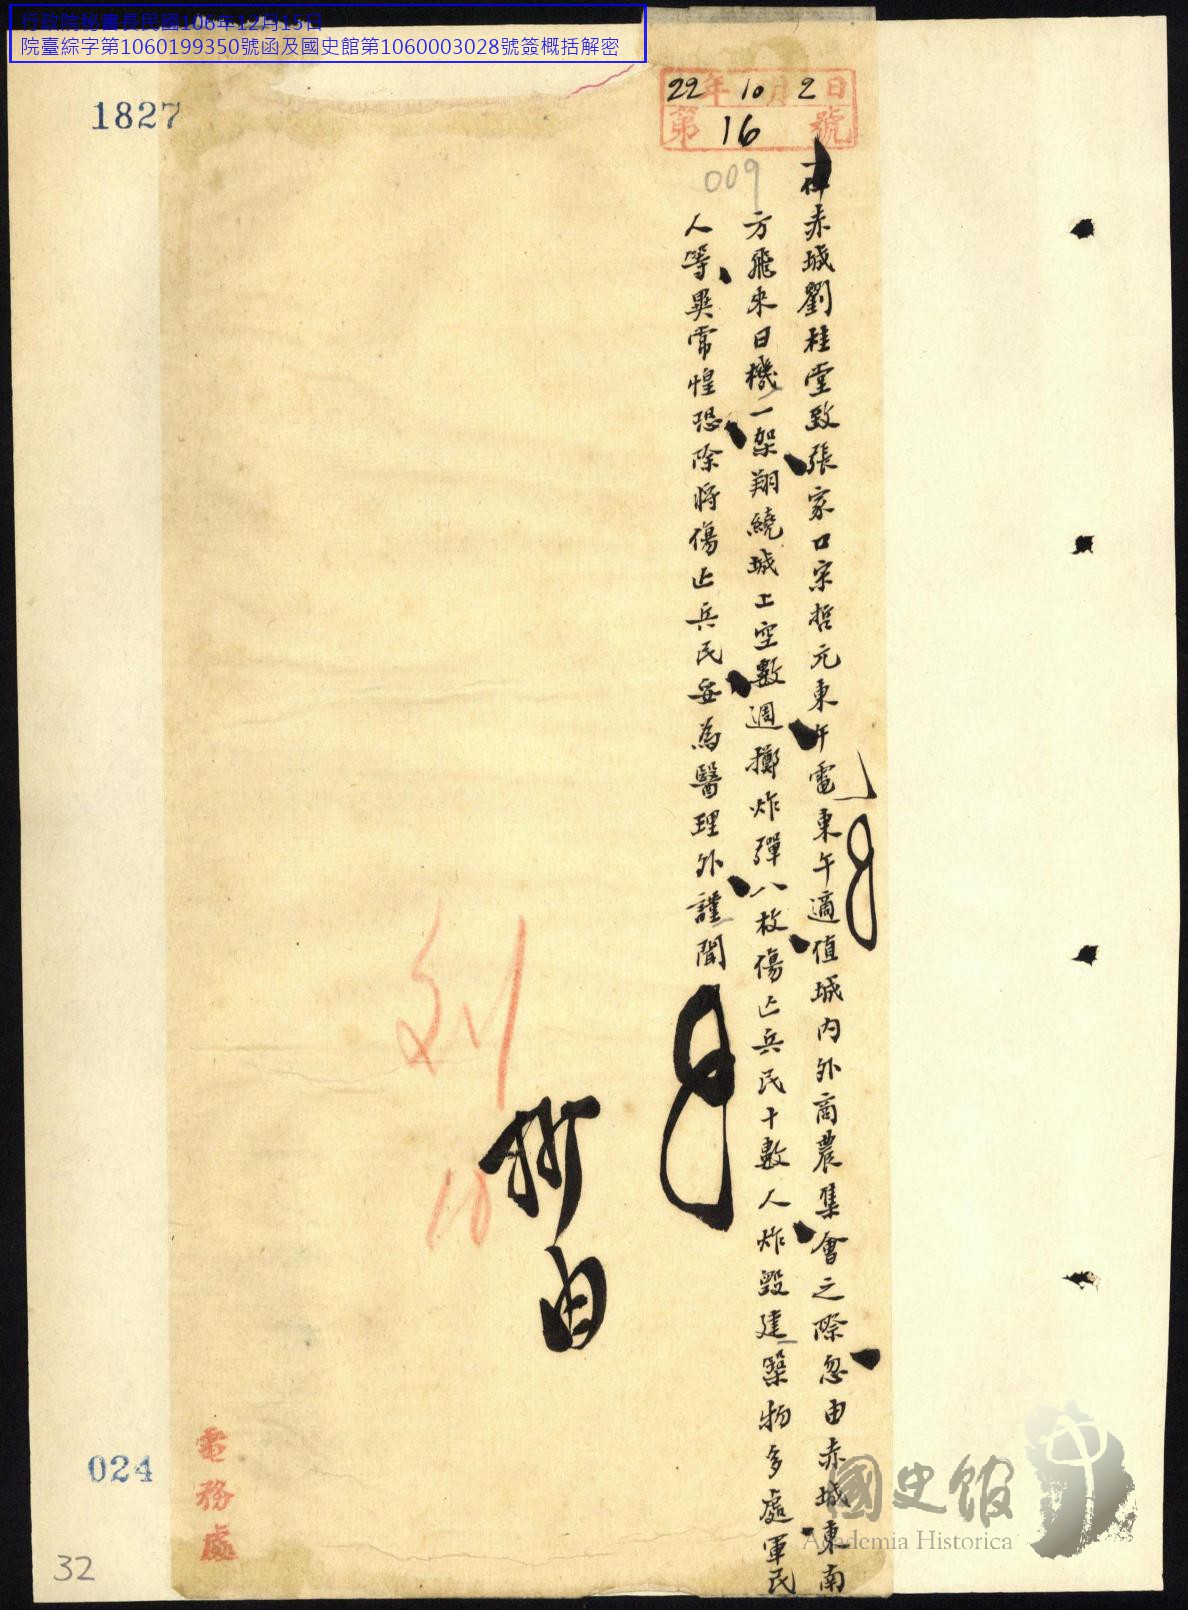 行政院秘書長民國106年12月15日
院臺綜字第1060199350號函及國史館第1060003028號簽概括解密
1827
22年10月2日
第16號
009
赤城劉桂堂致張家口宋哲元東午電東午適值城內外商農集會之際忽由赤城東南
方飛來日機一架翔繞城上空數週擲炸彈八枚傷亡兵民十數人炸毀建築物多處軍民
人等異常惶恐除將傷亡兵民妥為醫理外謹聞
列
10
電務處
024
32
國史館
Academia Historica